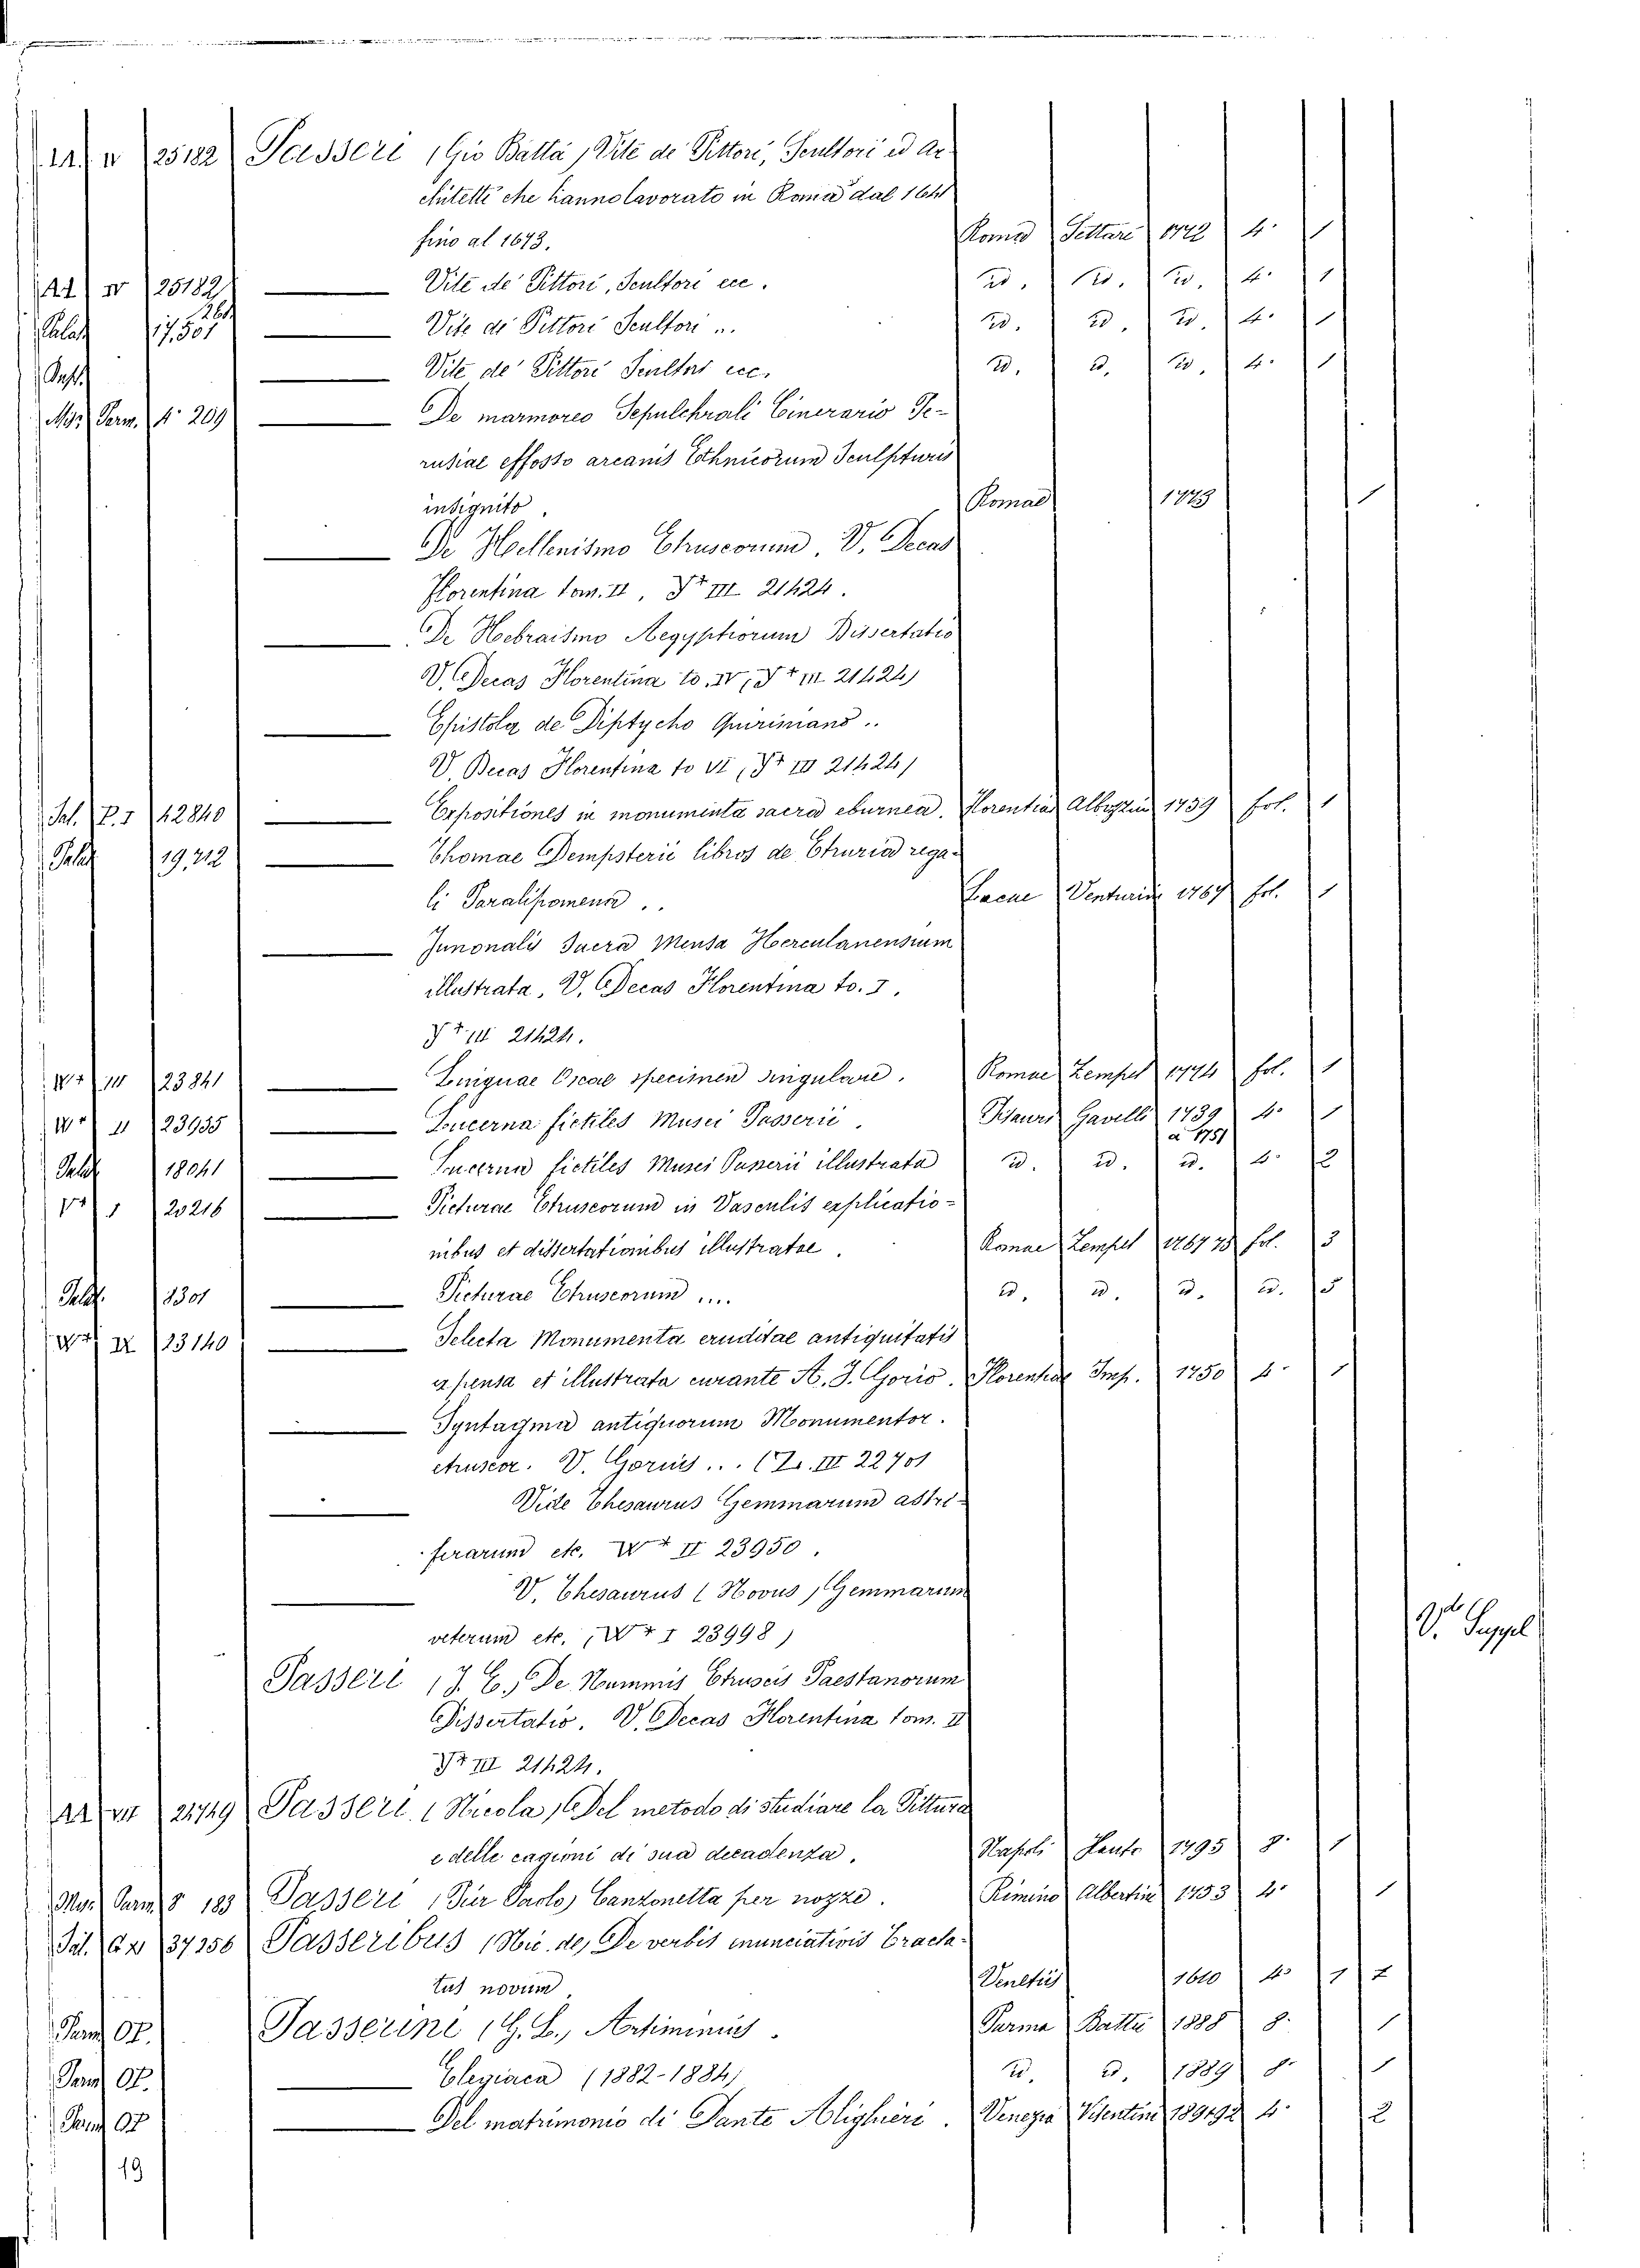 AA. V 25182 Passeri (Gio Batta) Vite de Pittori, Scultori ed Ar-
chitetti che hanno lavorato in Roma dal 1641
fino al 1673. Roma Settari 1772 4° 1
AA V 25182 — Vite de' Pittori, Scultori ecc. id. id. id. 4° 1
Palat 17,501 — Vite di Pittori Scultori ... id. id. id. 4° 1
— Vite de' Pittori Scultori ecc. id. id. id. 4° 1
Mss. Parm. 4° 209 — De marmoreo Sepulchrali Cinerario Pe-
rusiae effosso arcanis Ethnicorum Sculpturis
insignito. Romae 1773 1
— De Hellenismo Etruscorum. V. Decas
Florentina tom. II, Y+ III 21424.
— De Hebraismo Aegyptiorum Dissertatio
V. Decas Florentina to. IV, Y+ III 21424)
— Epistola de Diptycho Quirimano..
V. Decas Florentina to VI, Y+ III 21424)
Sal. P. I 42840 — Expositiones in monumenta sacra eburnea. Florentiae Albizzin 1759 fol. 1
Palat 19,212 — Thomae Dempsterii libros de Etruria rega-
li Paralipomena.. Lucae Venturini 1767 fol. 1
— Junonalis Sacra Mensa Herculanensium
illustrata, V. Decas Florentina to. I,
Y+ III 21424.
W+ III 23841 — Linguae Oscae specimen singulare. Romae Zempel 1774 fol. 1
W+ II 23935 — Lucerna fictiles Musei Passerii. Pisauri Gavelli 1739 4° 1
a 1751
Palat 18041 — Lucerna fictiles Musei Passerii illustrata id. id. id. 4° 2
V+ I 20216 — Picturae Etruscorum in Vasculis explicatio-
nibus et dissertationibus illustratae. Romae Zempel 1767 75 fol. 3
Palat. 8301 — Picturae Etruscorum .... id. id. id. id. 5
W+ IX 23140 — Selecta Monumenta eruditae antiquitatis
expensa et illustrata curante A. F. Gorio. Florentiae Imp. 1750 4° 1
— Syntagma antiquorum Monumentor.
etruscor. V. Gorius... (Z. III 22701
— Vide Thesaurus Gemmarum astri-
ferarum etc. W+ II 23950.
— V. Thesaurus (Novus) Gemmarum
veterum etc., W+ I 23998)
V. Suppl
Passeri (J. B.) De Nummis Etruscis Paestanorum
Dissertatio. V. Decas Florentina tom. II
Y+ III 21424.
AA VII 24749 Passeri (Nicola) Del metodo di studiare la Pittura
e delle cagioni di sua decadenza. Napoli 1795 8° 1
Mss. Parm. 8° 183 Passeri (Pier Paolo) Canzonetta per nozze. Rimino Albertini 1753 4° 1
Sal. 37356 Passeribus (Nic. de) De verbis enunciativis Tracta-
tus novum. Venetiis 1610 4° 1
Parm OP. Passerini (G. L.) Artiminius. Parma Battei 1888 8° 1
Parm OP. — Elegiaca (1882-1884) id. id. 1889 8° 1
Parm OP — Del matrimonio di Dante Alighieri. Venezia Visentini 1891 92 4° 2
19